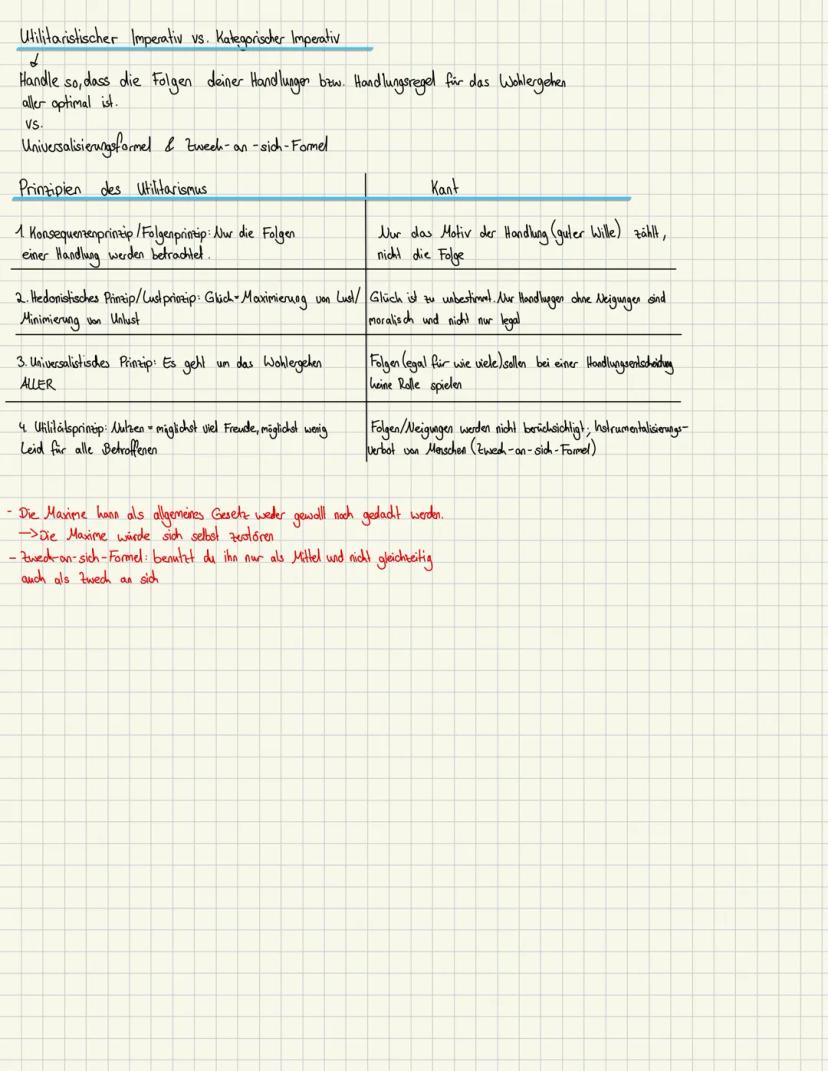 Utilitaristischer Imperativ vs. Kategorischer Imperativ
↓
Handle so, dass die Folgen deiner Handlungen bzw. Handlungsregel für das Wohlergehen
aller optimal ist.
vs.
Universalisierungsformel & Zweck-an-sich-Formel
Prinzipien des Utilitarismus
Kant
1. Konsequenzenprinzip/Folgenprinzip: Nur die Folgen
einer Handlung werden betrachtet.
Nur das Motiv der Handlung (guter Wille) zählt,
nicht die Folge
2. Hedonistisches Prinzip/Lustprinzip: Glück = Maximierung von Lust/
Minimierung von Unlust
Glück ist zu unbestimmt. Nur Handlungen ohne Neigungen sind
moralisch und nicht nur legal
3. Universalistisches Prinzip: Es geht um das Wohlergehen
ALLER
Folgen (egal für wie viele) sollen bei einer Handlungsentscheidung
keine Rolle spielen
4. Utilitätsprinzip: Nutzen = möglichst viel Freude, möglichst wenig
Leid für alle Betroffenen
Folgen/Neigungen werden nicht berücksichtigt; Instrumentalisierungs-
verbot von Menschen (Zweck-an-sich-Formel)
- Die Maxime kann als allgemeines Gesetz weder gewollt noch gedacht werden.
-> Die Maxime würde sich selbst zerstören
- Zweck-an-sich-Formel: benutzt du ihn nur als Mittel und nicht gleichzeitig
auch als Zweck an sich